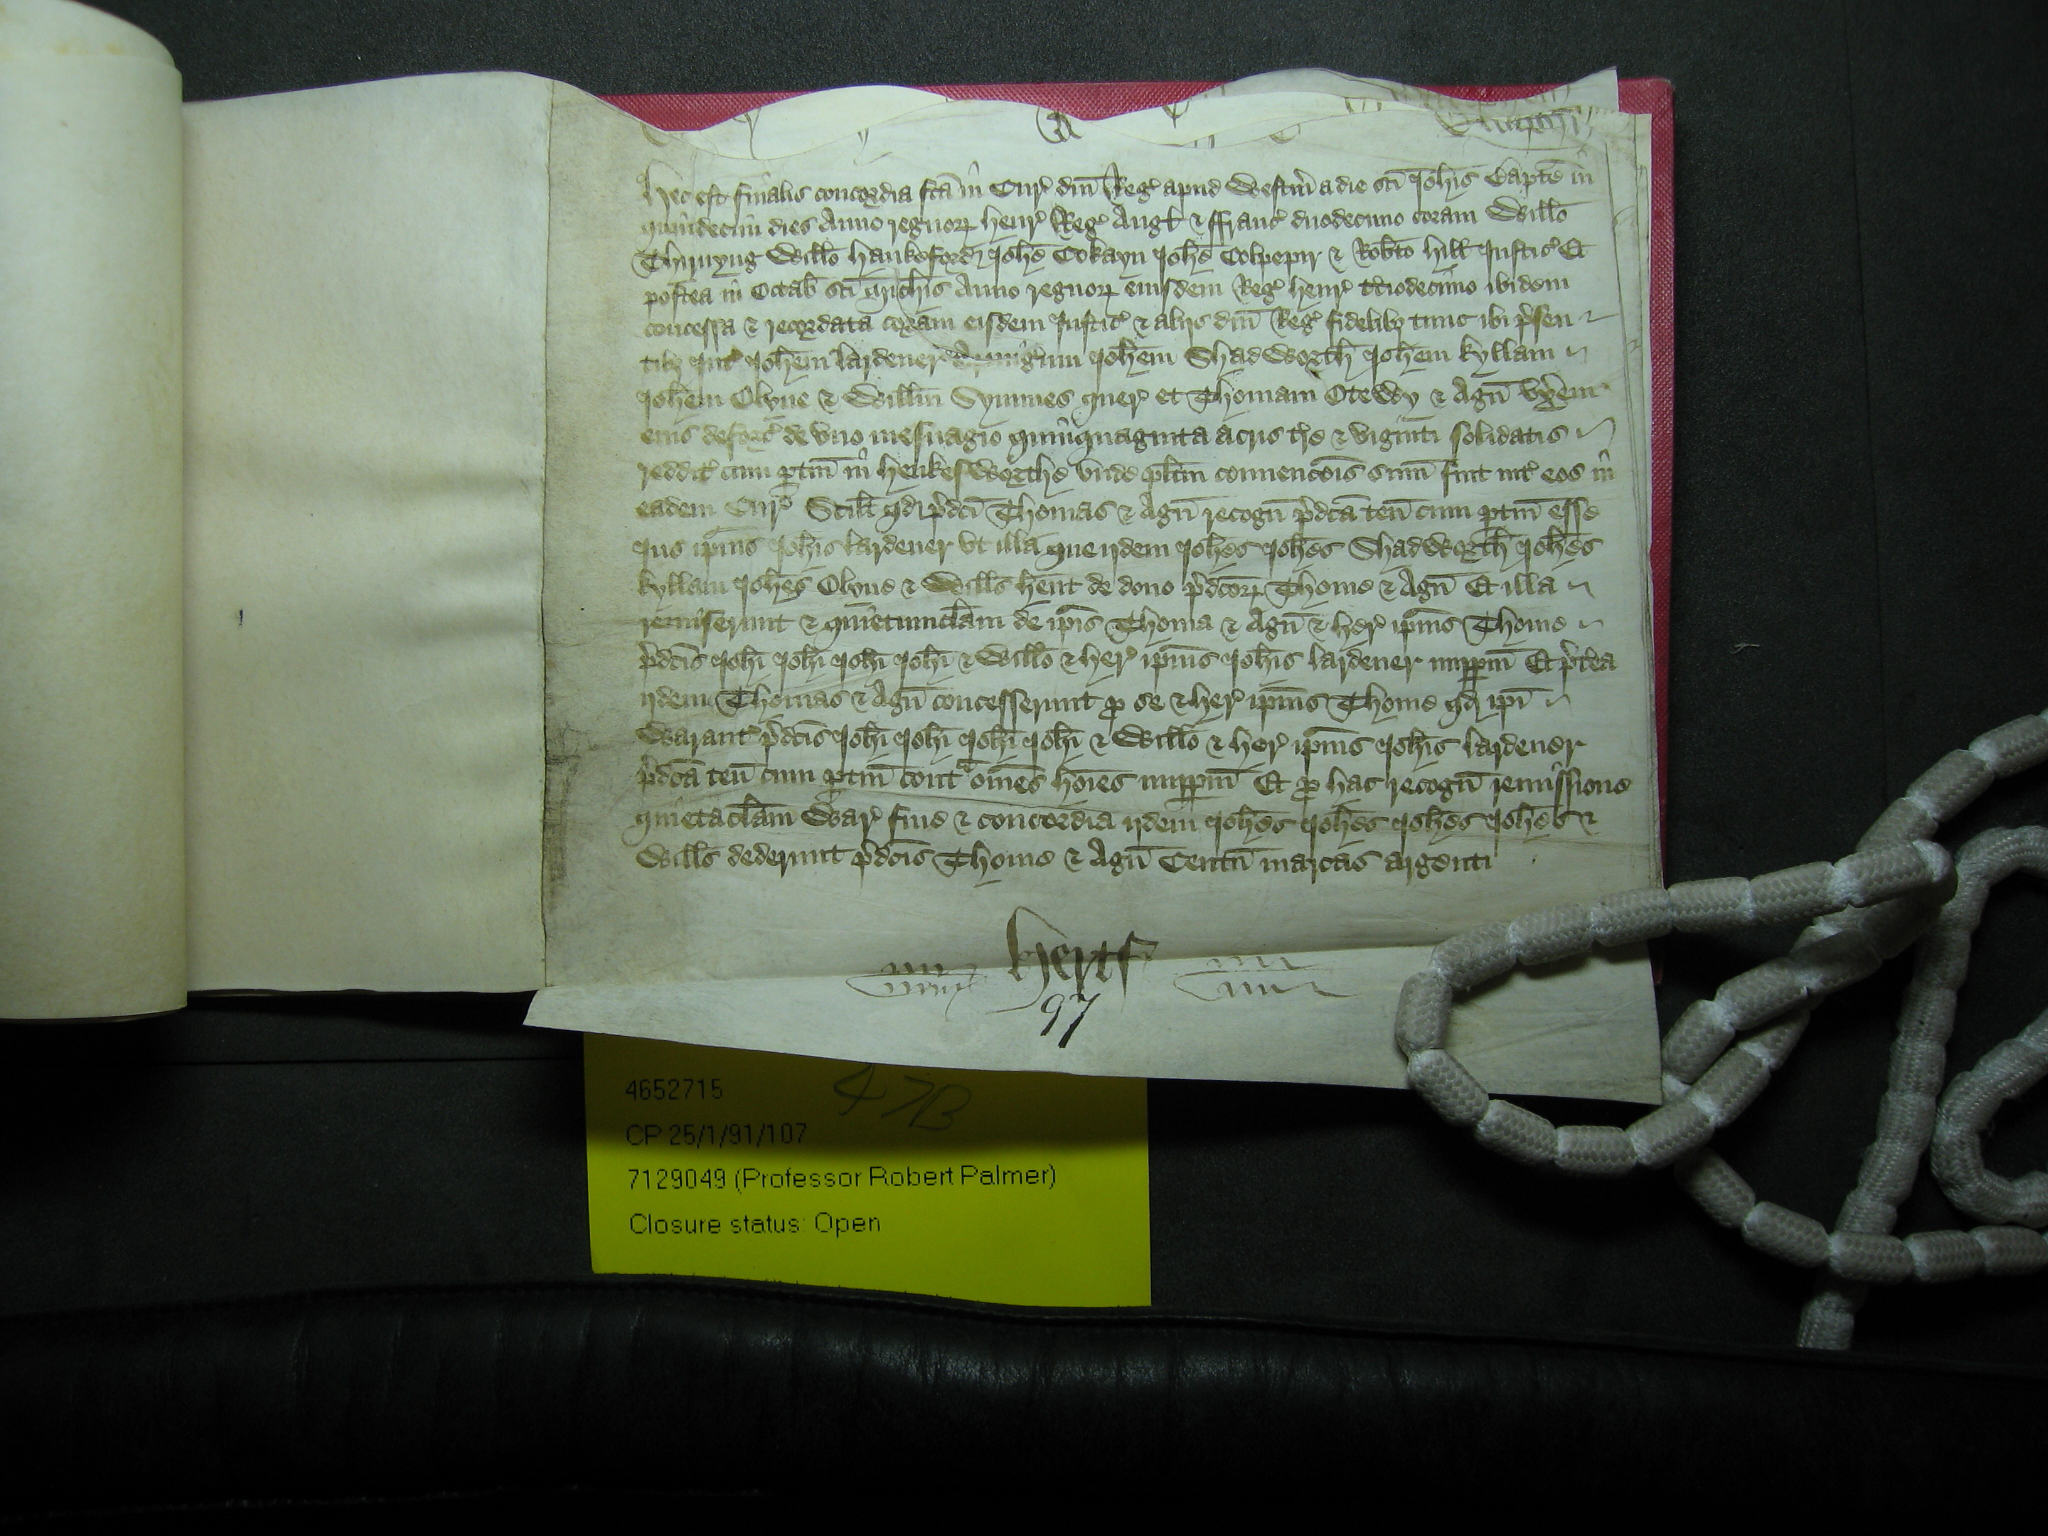 Hec est finalis concordia fc̃a in Cur̃ dñi Reg̃ apud Westm̃ a die sc̃i Joh̃is Bapt̃e in
quindecim dies Anno regnoꝝ Henr̃ Reg̃ Angł & ffranc̃ duodecimo coram Willo
Thirnyng Willo Hankeford Joh̃e Cokayn Joh̃e Colpepir & Rob̃to Hill Justic̃ Et
postea in Octab̃ sc̃i Mich̃is Anno regnoꝝ eiusdem Reg̃ Henr̃ t̃ciodecimo ibidem
concessa & recordata coram eisdem Justic̃ & aliis dñi Reg̃ fidelibȝ tunc ibi p̃sen
tibȝ Int̃ Joh̃em Lardener Armigerum Joh̃em Shadworth Joh̃em Kyllam
Joh̃em Olyue & Will̃m Symmes quer̃ et Thomam Otewy & Agñ vx̃em
eius deforc̃ de vno mesuagio quinquaginta acris t̃re & viginti solidatis
reddit̃ cum ptiñ in Henxteworthe vnde pl̃itm conuenc̃ois sum̃ fuit int̃ eos in
eadem Cur̃ Scil̃t qd p̃dc̃i Thomas & Agñ recogñ p̃dc̃a teñ cum ptiñ esse
Jus ip̃ius Joh̃is Lardener vt illa que ijdem Joh̃es Joh̃es Shadworth Joh̃es
Kyllam Joh̃es Olyue & Will̃s hẽnt de dono p̃dc̃oꝝ Thome & Agñ Et illa
remiserunt & quietumclam̃ de ip̃is Thoma & Agñ & her̃ ip̃ius Thome
p̃dc̃is Joh̃i Joh̃i Joh̃i Joh̃i & Will̃o & her̃ ip̃ius Joh̃is Lardener imppm̃ Et p̃t̃ea
ijdem Thomas & Agñ concesserunt p se & her̃ ip̃ius Thome qd ip̃i
Warant̃ p̃dc̃is Joh̃i Joh̃i Joh̃i Joh̃i & Will̃o & her̃ ip̃ius Joh̃is Lardener
p̃dc̃a teñ cum ptiñ cont̃ om̃es hoĩes imppm̃ Et p hac recogñ remissione
quietaclam̃ War̃ fine & concordia ijdem Joh̃es Joh̃es Joh̃es Joh̃es &
Will̃s dederunt p̃dc̃is Thome & Agñ Centũ marcas argenti
Hertf
97
4652715
47B
CP 25/1/91/107
7129049 (Professor Robert Palmer)
Closure status: Open